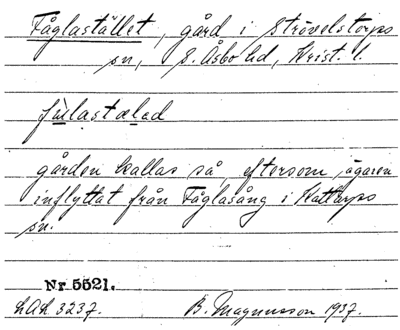 Fåglastället, gård i Strövelstorps
sn, S. Åsbo hd, Krist. l.
fu̲lastæl̲ad
gården kallas så, eftersom ägaren
inflyttat från Fåglasång i Kattarps
sn.
Nr 5521.
LAL 3237. B. Magnusson 1937.